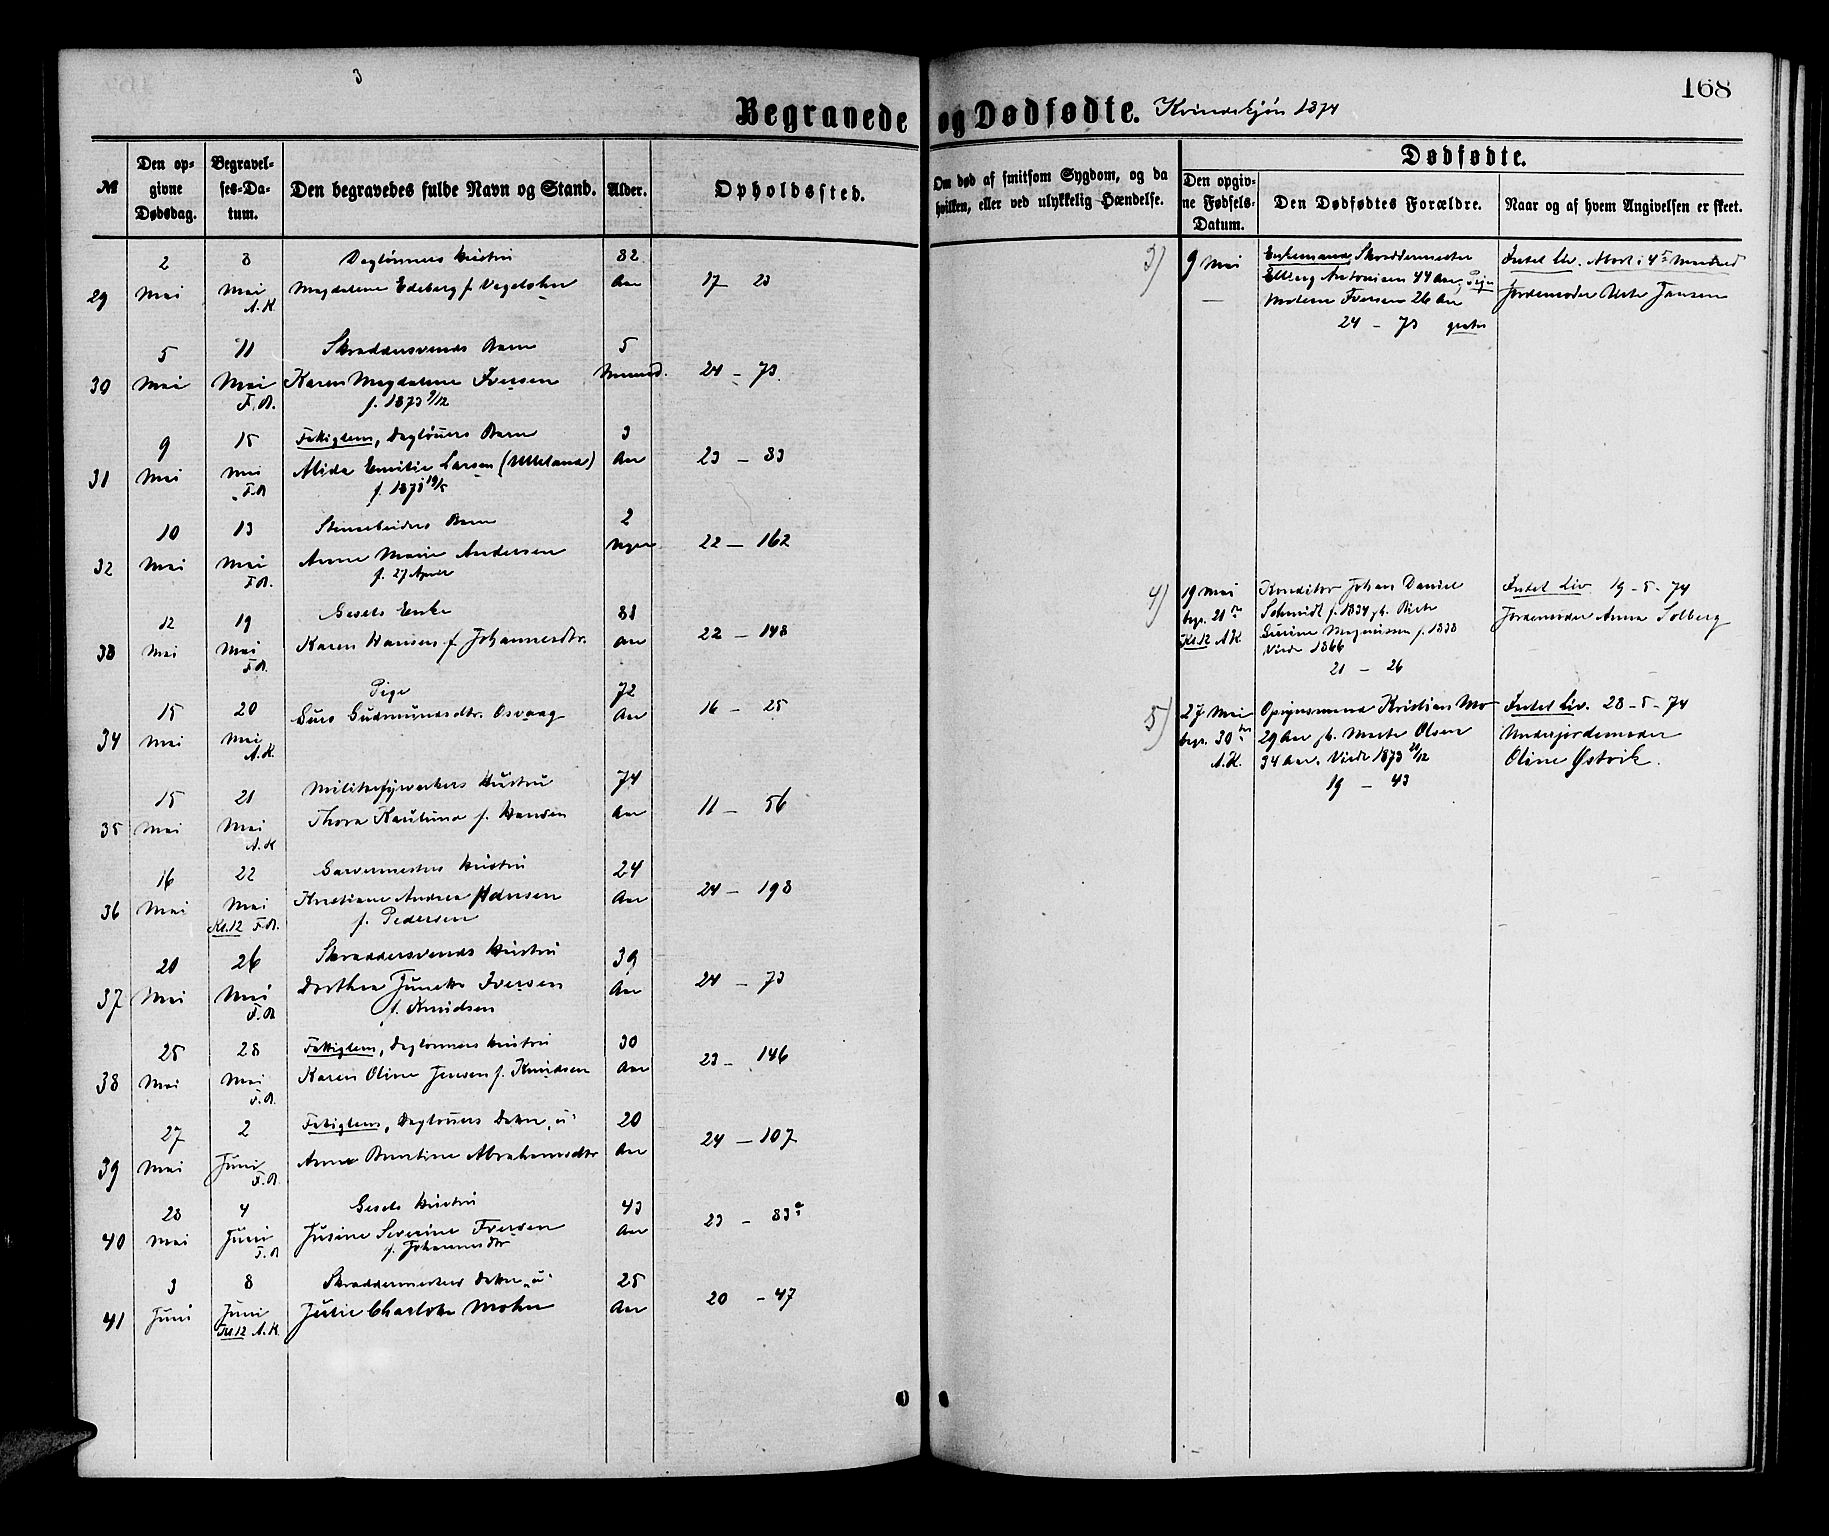 168
3
Begravede og Dødfødte. Kvindekjøn 1874
№
Den op-
givne
Dødsdag.
Begravel-
ses-Da-
tum.
Den begravedes fulde Navn og Stand.
Alder.
Opholdssted.
Om død af smitsom Sygdom, og da
hvilken, eller ved ulykkelig Hændelse.
Dødfødte.
Den opgiv-
ne Fødsels-
Datum.
Den Dødfødtes Forældre.
Naar og af hvem Angivelsen er skeet.
29 2 Mai 8 Mai A.K.
Daglønners Hustru
Magdalene Edeberg f.
82 Aar
17 23
30 5 Mai 11 Mai F.A.
Skræddersvends Barn
Karen Magdalene Iversen
f. 1873 9/12
5 Maaned.
24 – 73
31 9 Mai 15 Mai F.A.
Fattiglem, Dagløners Barn
Alida Emilie Larsen (Ulleland)
f. 1871 19/5
3 Aar
23 – 83
32 10 Mai 13 Mai F.A.
Stenarbeiders Barn
Anne Marie Andersen
f. 27 April
2 Uger
22 – 162
33 12 Mai 19 Mai F.A.
Gesels Enke
Karen Hansen f. Johannesdtr.
81 Aar
22 – 148
34 15 Mai 20 Mai A.K.
Pige
Guro Gudmundsdtr. Osvaag
72 Aar
16 – 25
35 15 Mai 21 Mai A.K.
Hustru
Thora Kaulund f. Hansen
74 Aar
11 – 56
36 16 Mai 22 Mai Kl. 12 F.A.
Garvermesters Hustru
Kristiane Andrea
f. Pedersen
24 Aar
24 – 198
37 20 Mai 26 Mai F.A.
Skræddersvends Hustru
Dorthea Junette Iversen
f. Knudsen
39 Aar
24 – 73
38 25 Mai 28 Mai F.A.
Fattiglem, Daglønners Hustru
Karen Oline Jensen f. Knudsen
30 Aar
23 – 146
39 27 Mai 2 Juni F.A.
Fattiglem, Dagløners Datter, u.
Anne Bertine Abrahamsdtr
20 Aar
24 – 107
40 28 Mai 4 Juni F.A.
Gesels Hustru
Jusine Severine Iversen
f. Johannesdtr
43 Aar
23 – 83a
41 3 Juni 8 Juni Kl. 12 A.K.
Skræddermesters Datter, u.
Julie Charlotte Mohn
25 Aar
20 – 47
3) 9 Mai –
Enkemand, Skræddermester
Elberg Antonisen 44 Aar, Pige
Malene Iversen 26 Aar
24 – 73 gratis
Intet Liv. Abort i 4de Maaned
Jordemoder Marte Jansen
4) 19 Mai
begr. 21de
Kl. 12 A.K.
Konditor Johan Daniel
Schmidt f. 1834 gb. Birte
Serine Magnussen f. 1838
Viede 1866
21 – 26
Intet Liv 19-5-74
Jordemoder Anna Solberg
5) 27 Mai
begr. 30te
A.K.
Opsynsmand Kristian Mo
29 Aar gb. Marte Olsen
34 Aar. Viede 1873 21/12
19 – 43
Intet Liv. 28-5-74
Underjordemoder
Oline Østvik.